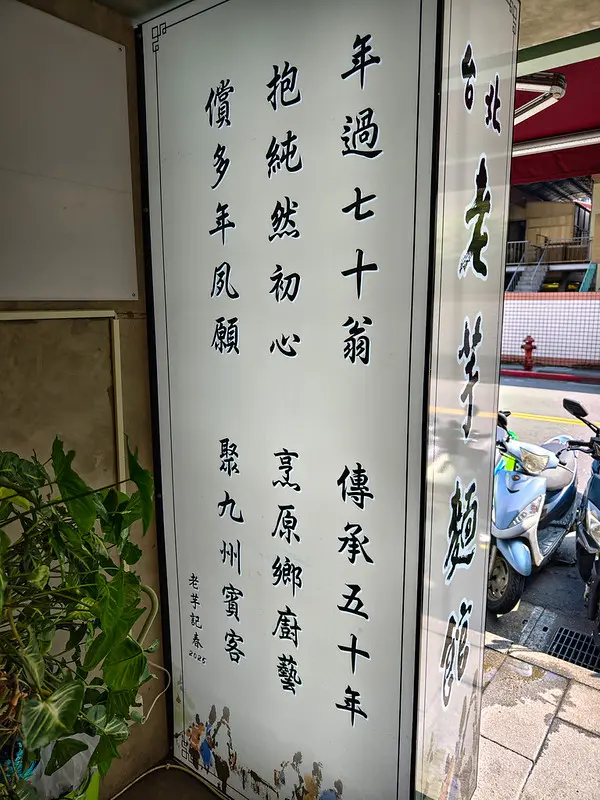 年過七十翁 傳承五十年
抱純然初心 烹原鄉廚藝
償多年夙願 聚九州賓客
老芋記春
2025
台北
老芋麵館